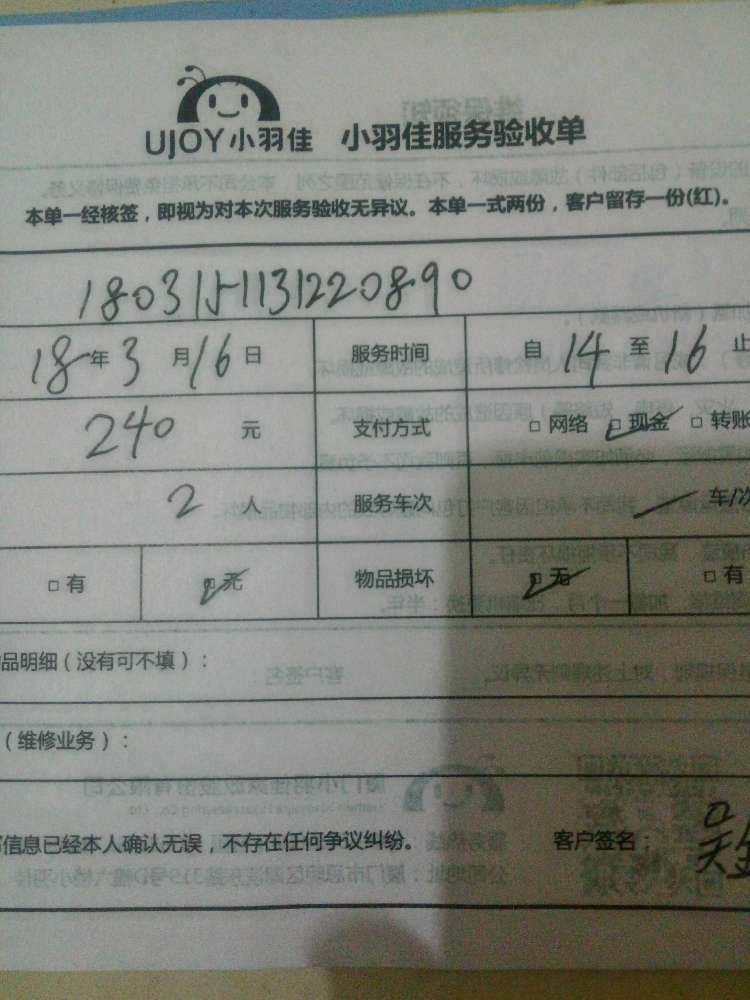 UJOY小羽佳 小羽佳服务验收单
本单一经核签，即视为对本次服务验收无异议。本单一式两份，客户留存一份(红)。
1803151131220890
18年3月16日 服务时间 自14至16止
240元 支付方式 □网络 ☑现金 □转账
2人 服务车次 车/次
□有 ☑无 物品损坏 ☑无 □有
品明细（没有可不填）：
（维修业务）：
信息已经本人确认无误，不存在任何争议纠纷。 客户签名： 吴